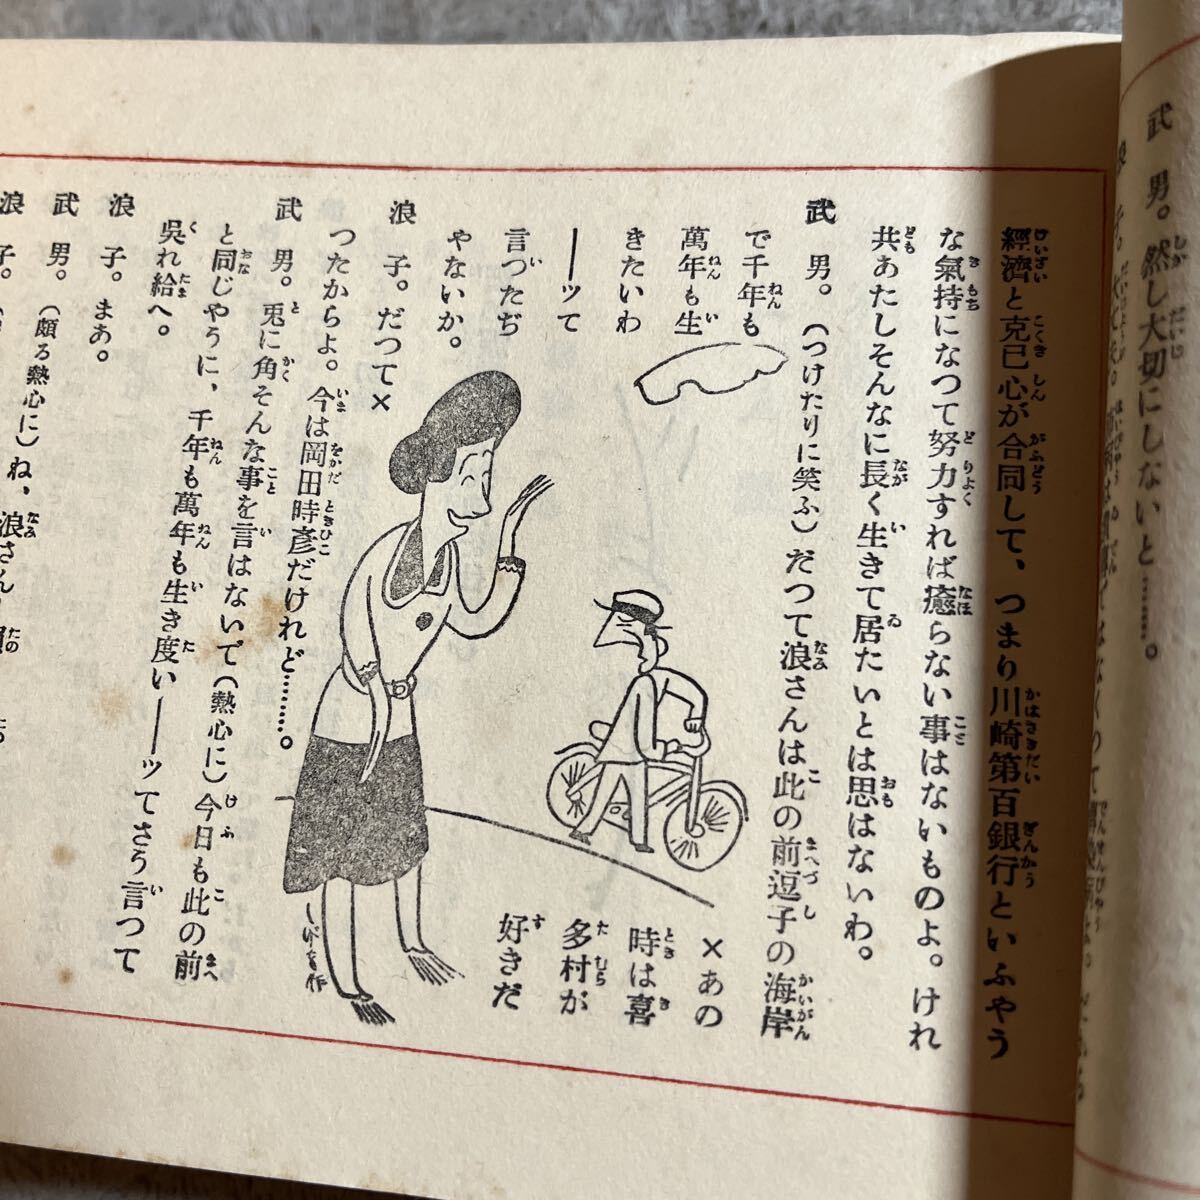 武 男。然し大切にしないと……。
經濟と克己心が合同して、つまり川崎第百銀行といふやう
な氣持になつて努力すれば癒らない事はないものよ。けれ
共あたしそんなに長く生きて居たいとは思はないわ。
武 男。（つけたりに笑ふ）だつて浪さんは此の前逗子の海岸
で千年も
萬年も生
きたいわ
――ッて
言つたぢ
やないか。
浪 子。だつて×
×あの
時は喜
多村が
好きだ
つたからよ。今は岡田時彥だけれど……。
武 男。兎に角そんな事を言はないで（熱心に）今日も此の前
と同じやうに、千年も萬年も生き度い――ッてさう言つて
吳れ給へ。
浪 子。まあ。
武 男。（頗る熱心に）ね、浪さん
浪 子。